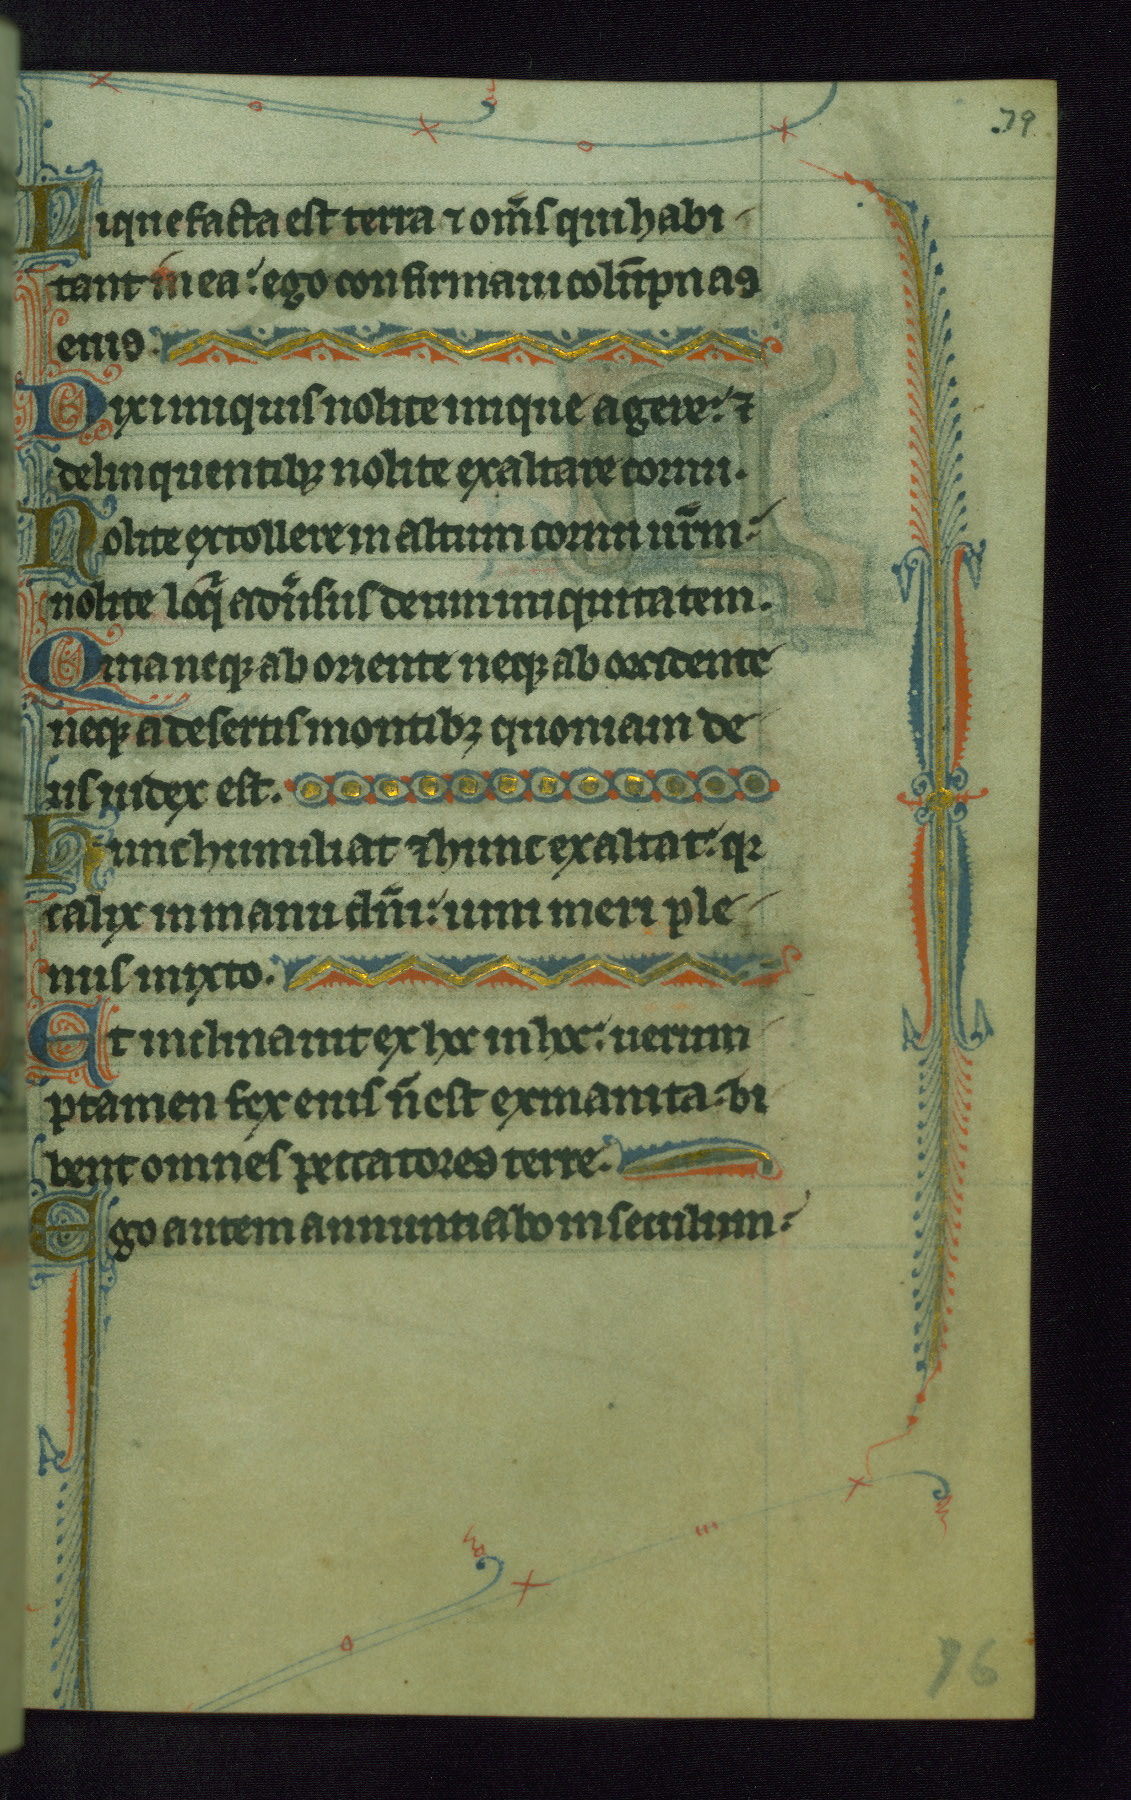 79
Liquefacta est terra ⁊ om̄s qui habi
tant in ea: ego confirmaui colūpnas
eius.
Dixi iniquis nolite inique agere: ⁊
delinquentibꝫ nolite exaltare cornu.
Nolite extollere in altum cornu ur̄m:
nolite loq̄ adūsus deum iniquitatem.
Quia neqꝫ ab oriente neqꝫ ab occidente
neqꝫ a desertis montibꝫ quoniam de
us iudex est.
hunc humiliat ⁊ hunc exaltat: qꝛ
calix in manu dn̄i: uini meri ple
nus mixto.
Et inclinauit ex hoc in hoc: uerum
ptamen fex eius n̄ est exinanita: bi
bent omnes peccatores terre.
Ego autem annuntiabo in seculum:
76